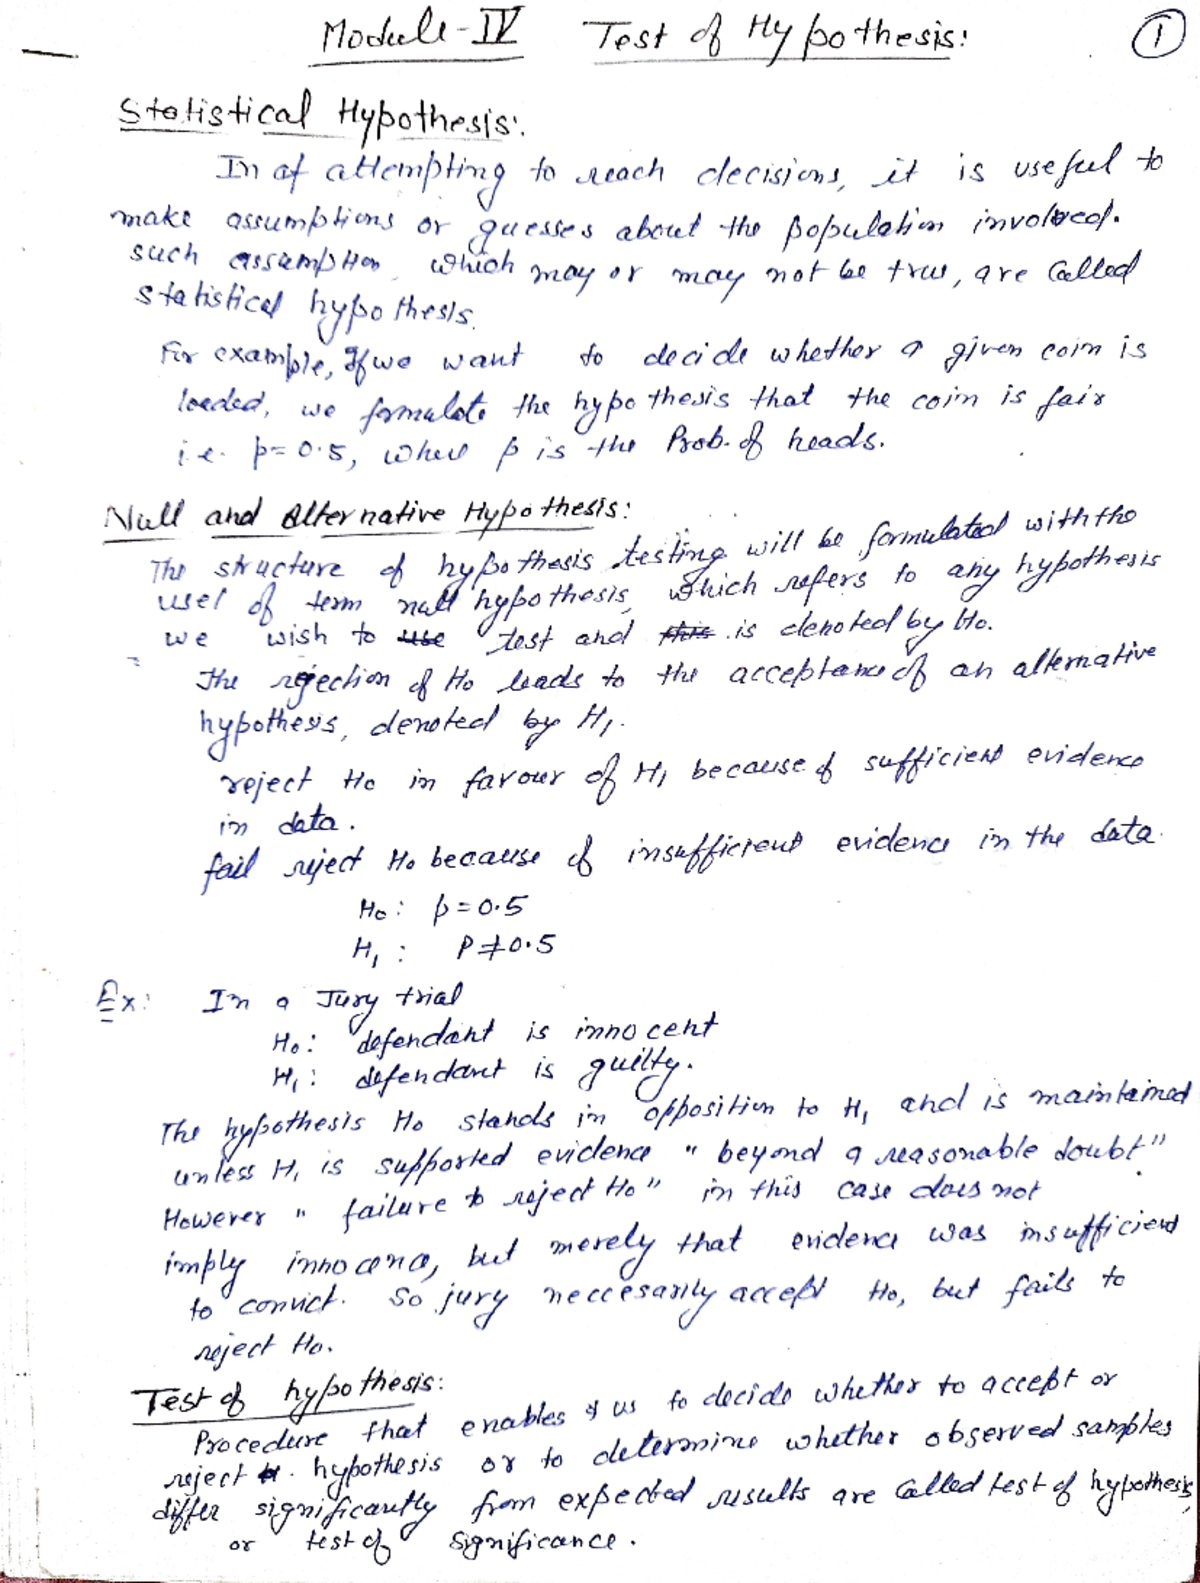 Module-IV Test of Hypothesis: 1
Statistical Hypothesis:
In of attempting to reach decisions, it is useful to
make assumptions or guesses about the population involved.
such assumption which may or may not be true, are called
statistical hypothesis.
For example, If we want to decide whether a given coin is
loaded, we formulate the hypothesis that the coin is fair
i.e. p=0.5, where p is the Prob. of heads.
Null and Alternative Hypothesis:
The structure of hypothesis testing will be formulated with the
use of term null hypothesis, which refers to any hypothesis
we wish to use test and this is denoted by Ho.
The rejection of Ho leads to the acceptance of an alternative
hypothesis, denoted by H1.
reject Ho in favour of H1 because of sufficient evidence
in data.
fail reject Ho because of insufficient evidence in the data.
Ho: p=0.5
H1: P≠0.5
Ex: In a Jury trial
Ho: defendant is innocent
H1: defendant is guilty.
The hypothesis Ho stands in opposition to H1 and is maintained
unless H1 is supported evidence "beyond a reasonable doubt"
However "failure to reject Ho" in this case does not
imply innocence, but merely that evidence was insufficient
to convict. So jury neccesarily accept Ho, but fails to
reject Ho.
Test of hypothesis:
Procedure that enables us to decide whether to accept or
reject hypothesis or to determine whether observed samples
differ significantly from expected results are called test of hypothesis,
or test of significance.